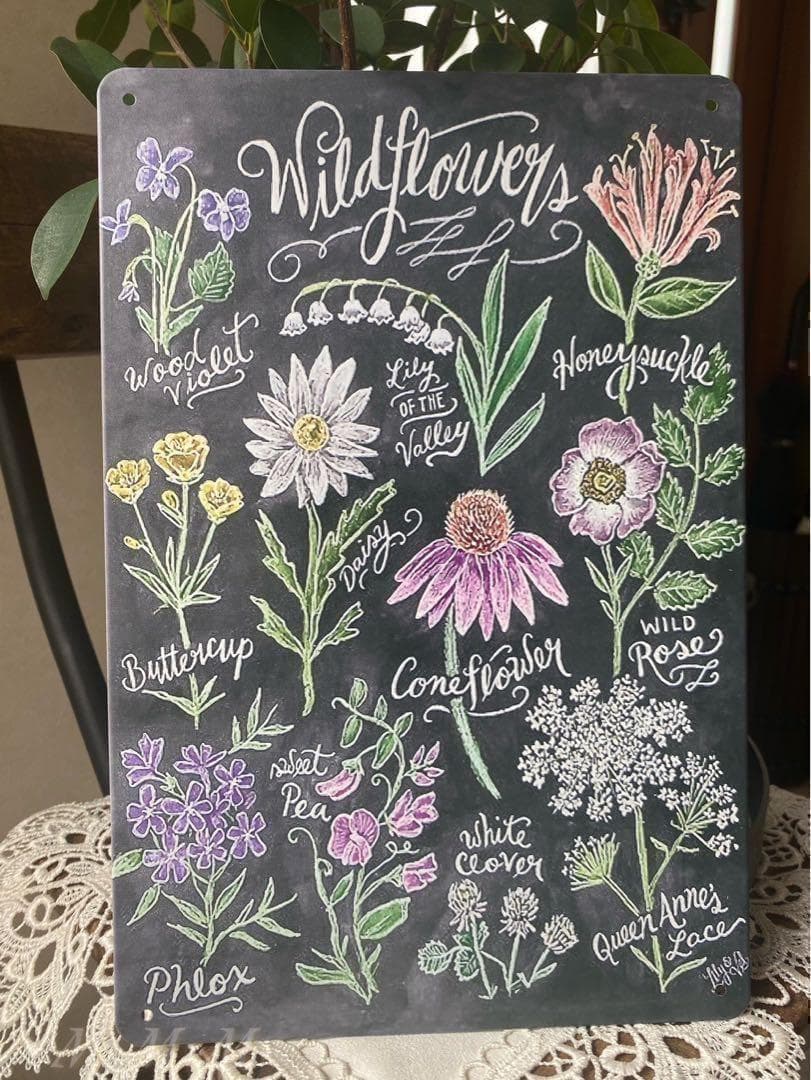 Wildflowers
Wood
Violet
Lily
OF THE
Valley
Honeysuckle
Daisy
Buttercup
Coneflower
WILD
Rose
Sweet
Pea
White
Clover
Phlox
Queen Anne's
Lace
Lily & Val